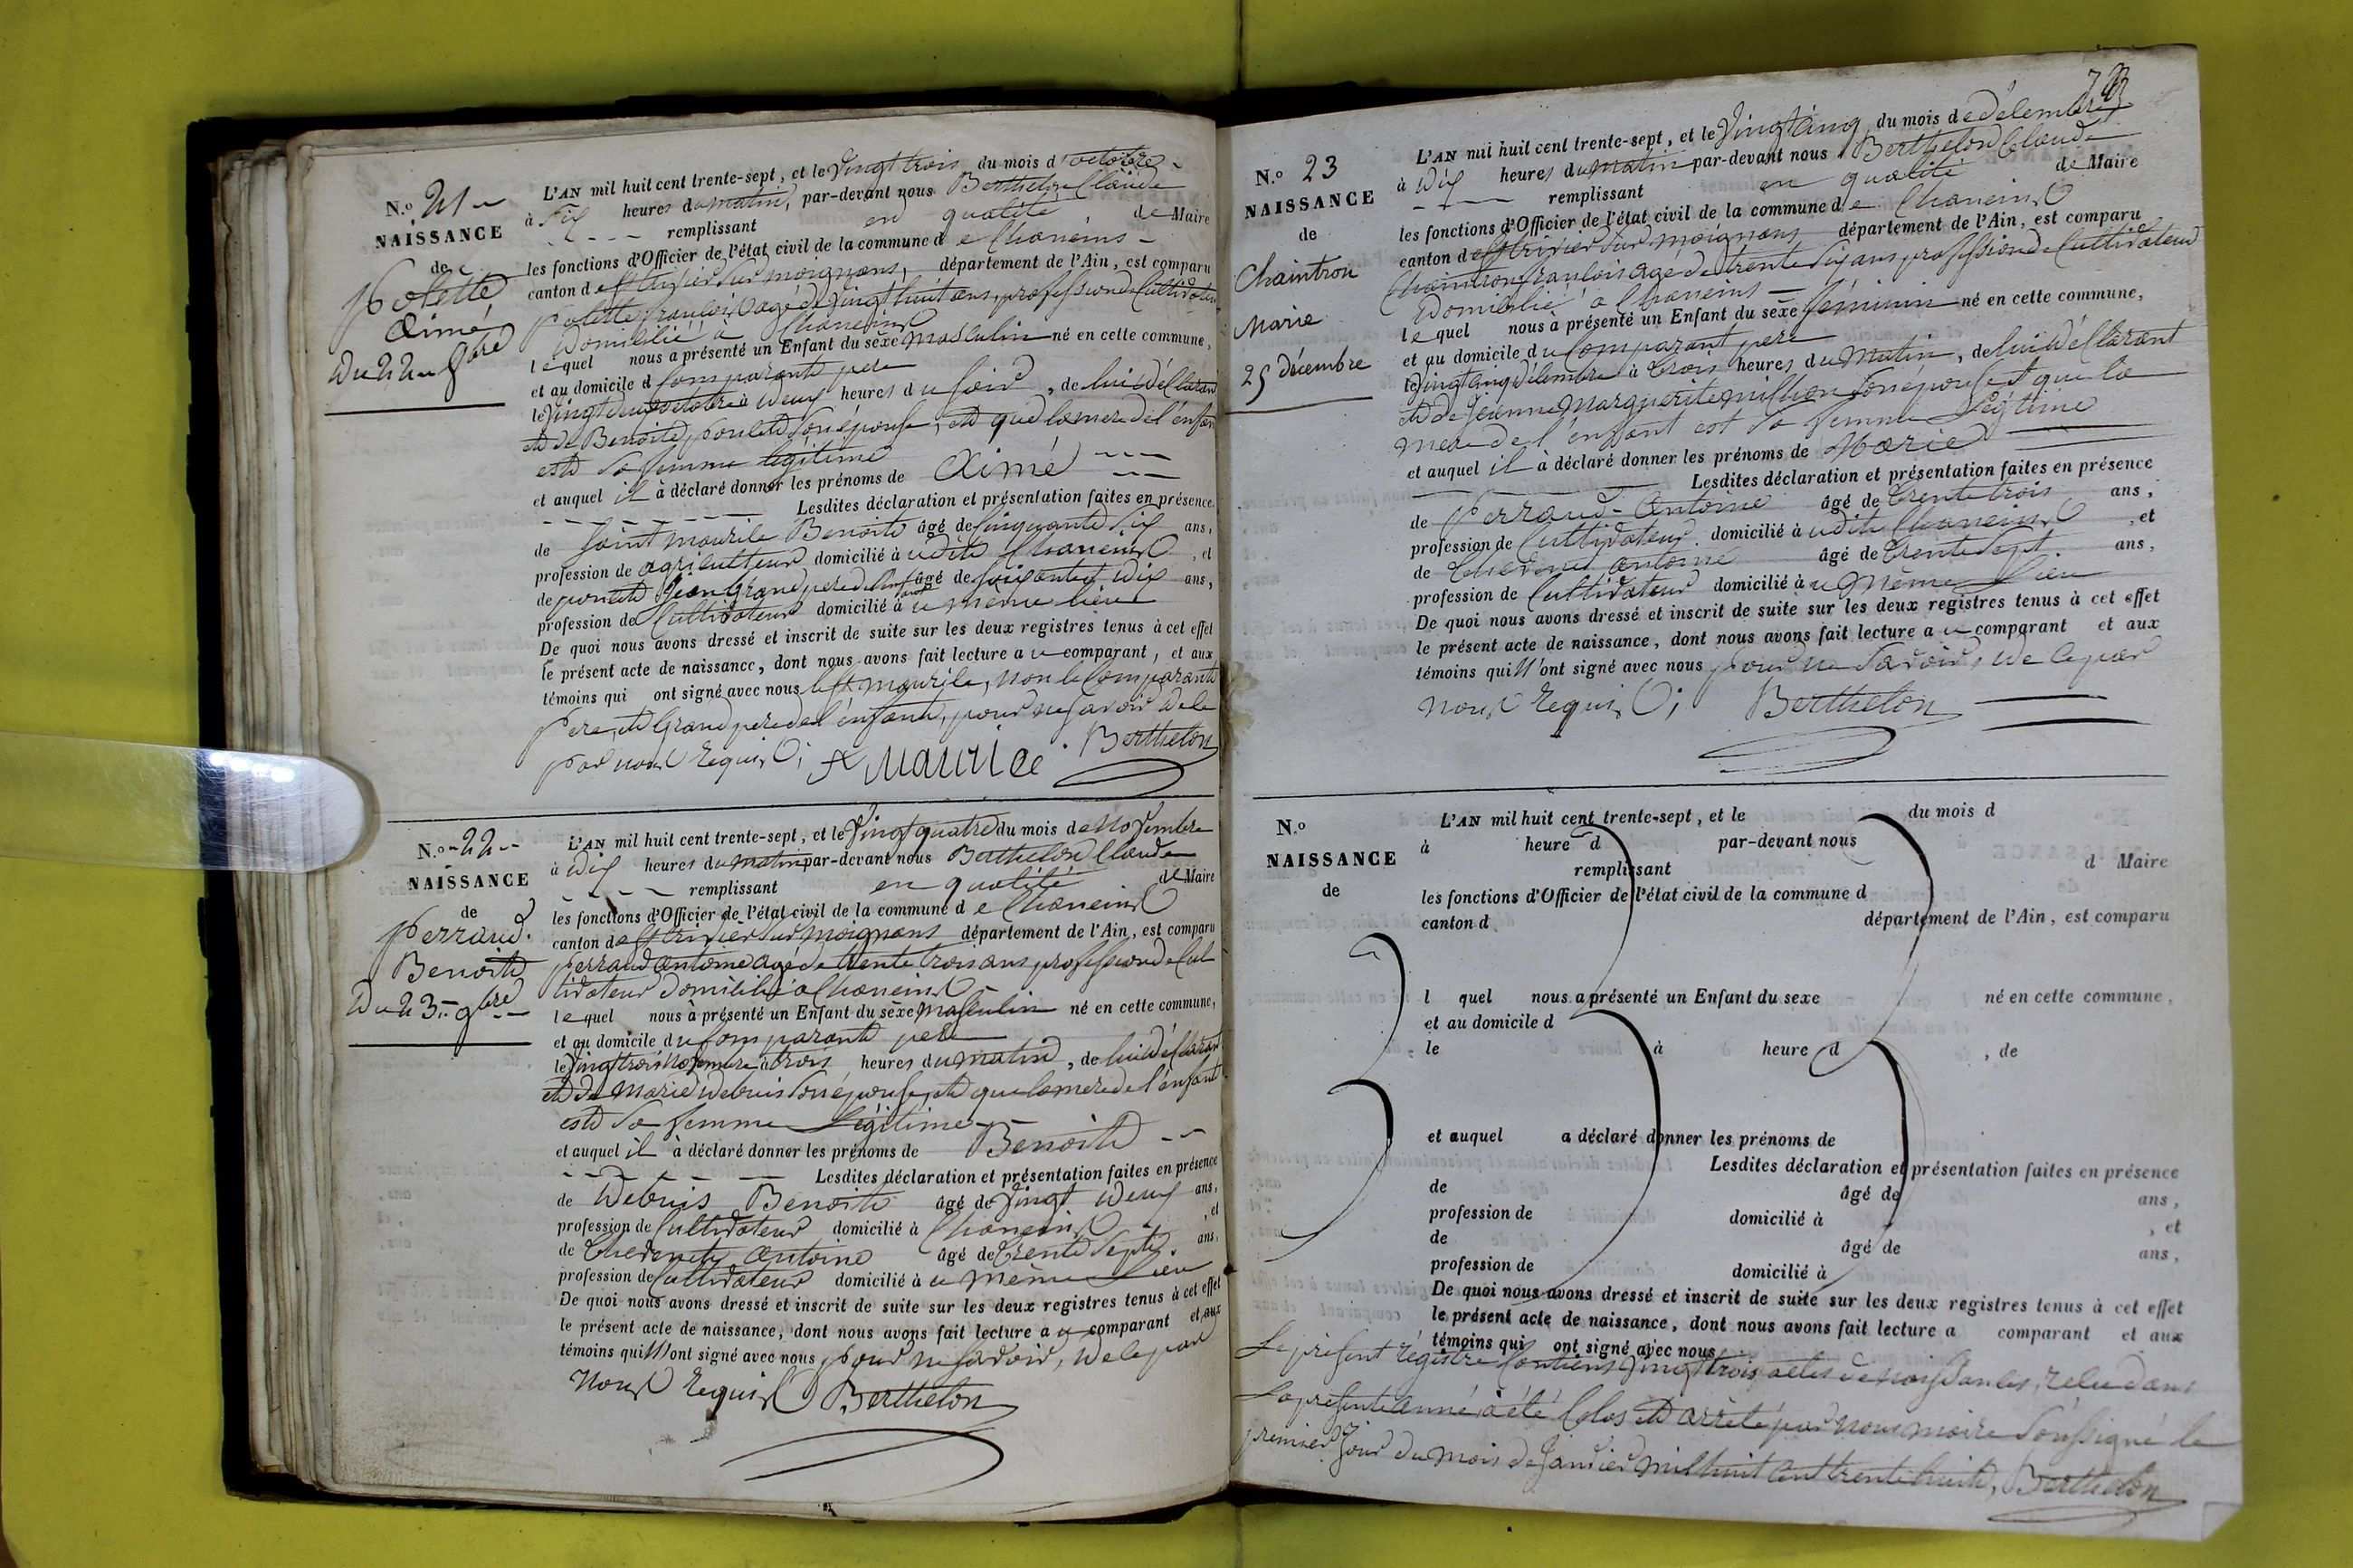 N.o 21
NAISSANCE
de
Polette
Aimé
Du 22 8bre
L'AN mil huit cent trente-sept, et le vingt trois du mois d'octobre
à Six heures du matin, par-devant nous Berthelon Claude
remplissant en qualité de Maire
les fonctions d'Officier de l'état civil de la commune de Chaneins
canton de St trivier Sur moignans, département de l'Ain, est comparu
Polette françois agé de vingt huit ans, profession de Cultivateur
Domicilié à Chaneins
lequel nous a présenté un Enfant du sexe masculin né en cette commune,
et au domicile d Comparant pere
le vingt deux octobre à deux heures du Soir, de lui déclarant
et de Benoite poulet Son épouse, et que la mere de l'enfant
est Sa femme legitime
et auquel il à déclaré donner les prénoms de Aimé
Lesdites déclaration et présentation faites en présence
de Saint maurile Benoit âgé de Cinquante Six ans,
profession de agriculteur domicilié à udit Chaneins, et
de poulet Jean Grand pere de l'enfant âgé de Soixante dix ans,
profession de Cultivateur domicilié à u même lieu
De quoi nous avons dressé et inscrit de suite sur les deux registres tenus à cet effet
le présent acte de naissance, dont nous avons fait lecture a u comparant, et aux
témoins qui ont signé avec nous le St maurile, non le Comparant
Pere, et Grand pere de l'enfant, pour ne Savoir de le
par nous Requis; St Maurice. Berthelon
N.o 22
NAISSANCE
de
Perraud.
Benoit
Du 23 9bre
L'AN mil huit cent trente-sept, et le vingt quatre du mois de Novembre
à dix heures du matin par-devant nous Berthelon Claude
remplissant en qualité de Maire
les fonctions d'Officier de l'état civil de la commune de Chaneins
canton de St trivier Sur moignans département de l'Ain, est comparu
Perraud antoine agé de trente trois ans profession de Cul
tivateur Domicilié a Chaneins
lequel nous à présenté un Enfant du sexe masculin né en cette commune,
et au domicile du Comparant pere
le vingt trois Novembre à trois heures du matin, de lui déclarant
et de Marie debuis Son épouse, et que la mere de l'enfant
est Sa femme Légitime
et auquel il à déclaré donner les prénoms de Benoit
Lesdites déclaration et présentation faites en présence
de Debuis Benoit âgé de vingt deux ans,
profession de Cultivateur domicilié à Chaneins, et
de Antoine âgé de trente Sept. ans,
profession de Cultivateur domicilié à u même lieu
De quoi nous avons dressé et inscrit de suite sur les deux registres tenus à cet effet
le présent acte de naissance, dont nous avons fait lecture a u comparant et aux
témoins qui N'ont signé avec nous pour ne Savoir, de le par
Nous Requis Berthelon
N.o 23
NAISSANCE
de
Chaintron
Marie
25 décembre
L'AN mil huit cent trente-sept, et le vingt cinq du mois de décembre
à dix heures du matin par-devant nous Berthelon Claude
remplissant en qualité de Maire
les fonctions d'Officier de l'état civil de la commune de Chaneins
canton de St trivier Sur moignans département de l'Ain, est comparu
Chaintron françois agé de trente Six ans profession de Cultivateur
Domicilié a Chaneins
lequel nous à présenté un Enfant du sexe féminin né en cette commune,
et au domicile du Comparant pere
le vingt cinq décembre à trois heures du Matin, de lui déclarant
et de Jeanne Marguerite Son épouse et que la
mere de l'enfant est Sa femme Légitime
et auquel il à déclaré donner les prénoms de Marie
Lesdites déclaration et présentation faites en présence
de Perraud Antoine âgé de trente trois ans,
profession de Cultivateur. domicilié à udit Chaneins, et
de antoine âgé de trente Sept. ans,
profession de Cultivateur domicilié à u Même Lieu
De quoi nous avons dressé et inscrit de suite sur les deux registres tenus à cet effet
le présent acte de naissance, dont nous avons fait lecture a u comparant et aux
témoins qui N'ont signé avec nous pour ne Savoir, de le par
Nous Requis; Berthelon
N.o
NAISSANCE
de
L'AN mil huit cent trente-sept, et le du mois d
à heure d par-devant nous
remplissant d Maire
les fonctions d'Officier de l'état civil de la commune d
canton d département de l'Ain, est comparu
l quel nous a présenté un Enfant du sexe né en cette commune,
et au domicile d
le à heure d , de
et auquel a déclaré donner les prénoms de
Lesdites déclaration et présentation faites en présence
de âgé de ans,
profession de domicilié à , et
de âgé de ans,
profession de domicilié à
De quoi nous avons dressé et inscrit de suite sur les deux registres tenus à cet effet
le présent acte de naissance, dont nous avons fait lecture a comparant et aux
témoins qui ont signé avec nous
Le présent régistre Contient vingt trois actes de naissances, relu dans
La présente année à été Clos et arrêté par nous maire Soussigné le
premier Jour du mois de Janvier mil huit cent trente huit, Berthelon